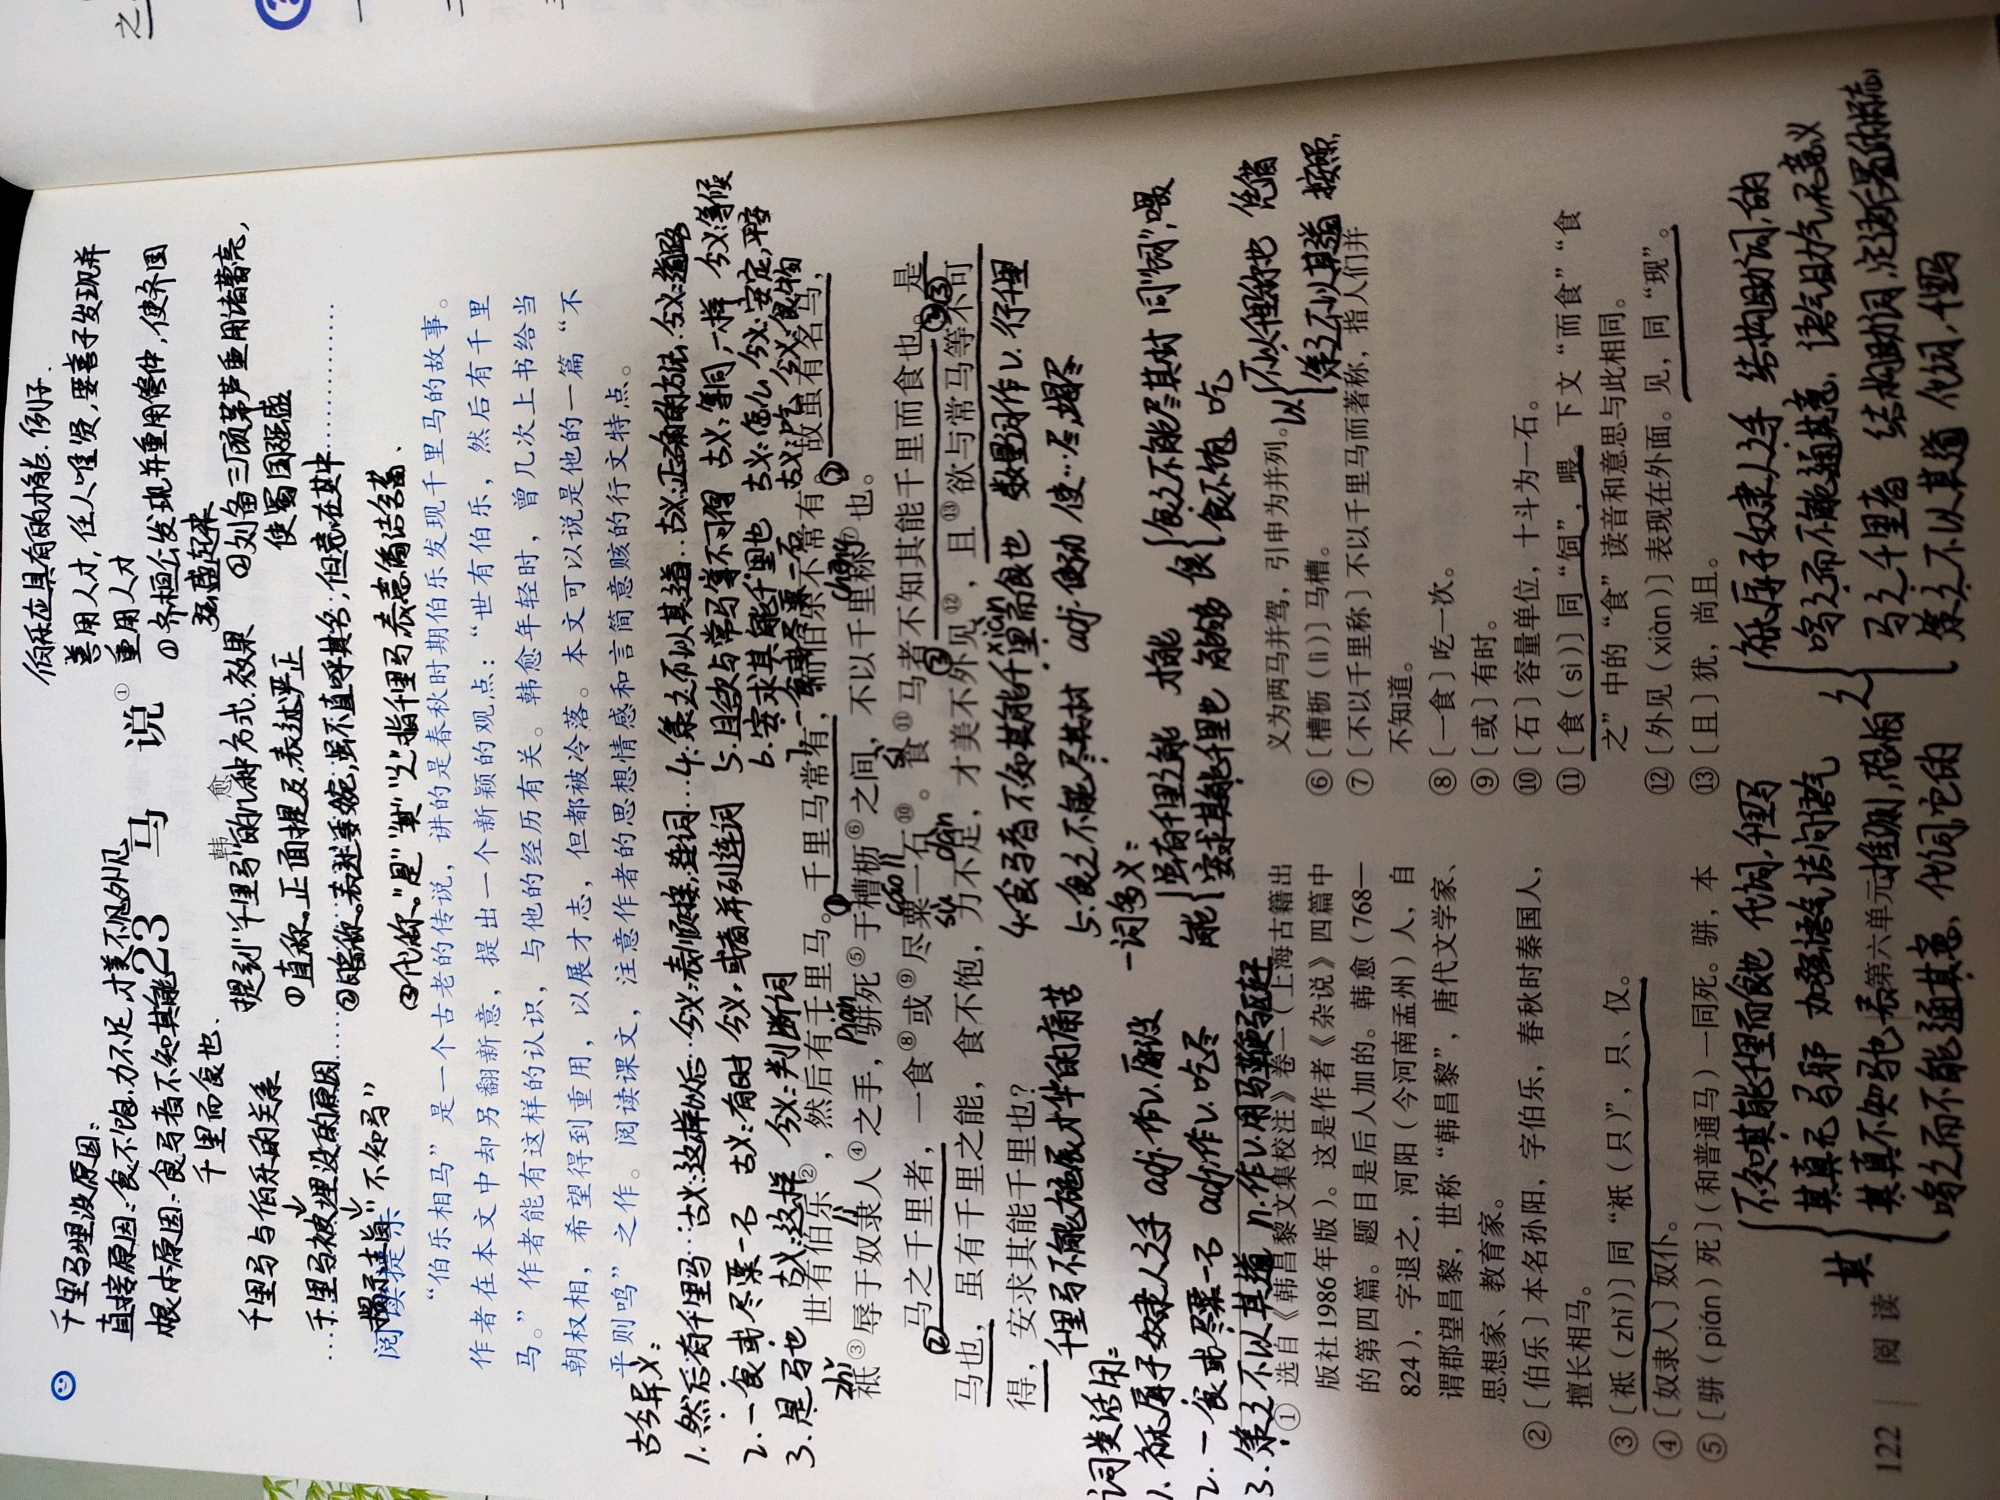 千里马埋没原因：
直接原因：食不饱，力不足，才美不外见
根本原因：食马者不知其能
千里而食也
伯乐应具有的功能.例子.
善用人才，任人唯贤，要善于发现并
重用人才
①齐桓公发现并重用管仲，使齐国
强盛起来
②刘备三顾茅芦重用诸葛亮，
使蜀国强盛
23 马 说①
韩 愈
千里马与伯乐的关系
千里马被埋没的原因
"不知马"
提到"千里马"的几种方式.效果
①直称.正面提及 表述严正
②暗称.表述委婉，虽不直呼其名，但意在其中
③代称."是""其""之"指千里马 表意简洁
阅读提示
"伯乐相马"是一个古老的传说，讲的是春秋时期伯乐发现千里马的故事。
作者在本文中却另翻新意，提出一个新颖的观点："世有伯乐，然后有千里
马。"作者能有这样的认识，与他的经历有关。韩愈年轻时，曾几次上书给当
朝权相，希望得到重用，以展才志，但都被冷落。本文可以说是他的一篇"不
平则鸣"之作。阅读课文，注意作者的思想情感和言简意赅的行文特点。
古今异义：
1.然后有千里马 古义：这样以后 今义：表顺接，连词
2.一食或尽粟一石 古义：有时 今义：或者 并列连词
3.是马也 古义：这样 今义：判断词
4.策之不以其道 古义：正确的方法 今义：道路
5.且欲与常马等不可得 古义：等同，一样 今义：等候
6.安求其能千里也 古义：怎么 今义：安定，平安
7.一食或尽粟一石 古义：吃 今义：食物
世有伯乐②，然后有千里马。千里马常有，而伯乐不常有。故虽有名马，
祇③辱于奴隶人④之手，骈死⑤于槽枥⑥之间，不以千里称⑦也。
zhǐ
pián
cáo lì
chēng
马之千里者，一食⑧或⑨尽粟一石⑩。食⑪马者不知其能千里而食也。是
sù
dàn
sì
马也，虽有千里之能，食不饱，力不足，才美不外见⑫，且⑬欲与常马等不可
xiàn
得，安求其能千里也？
千里马不能施展才华的痛苦
词类活用：
1.祇辱于奴隶人之手 adj.作v.辱没
2.一食或尽粟一石 adj作v.吃尽
3.策之不以其道 n.作v.用马鞭驱赶
4.食马者不知其能千里而食也 数量词作v.行千里
5.食之不能尽其材 adj.使动 使…尽，竭尽
一词多义：
能 虽有千里之能 才能
安求其能千里也 能够
食 食之不能尽其材 同"饲"，喂
食不饱 吃
以 不以千里称也 凭借
策之不以其道 按照，
①选自《韩昌黎文集校注》卷一（上海古籍出
版社1986年版）。这是作者《杂说》四篇中
的第四篇。题目是后人加的。韩愈（768—
824），字退之，河阳（今河南孟州）人，自
谓郡望昌黎，世称"韩昌黎"，唐代文学家、
思想家、教育家。
②〔伯乐〕本名孙阳，字伯乐，春秋时秦国人，
擅长相马。
③〔祇（zhǐ）〕同"衹（只）"，只、仅。
④〔奴隶人〕奴仆。
⑤〔骈（pián）死〕（和普通马）一同死。骈，本
义为两马并驾，引申为并列。
⑥〔槽枥（lì）〕马槽。
⑦〔不以千里称〕不以千里马而著称，指人们并
不知道。
⑧〔一食〕吃一次。
⑨〔或〕有时。
⑩〔石〕容量单位，十斗为一石。
⑪〔食（sì）〕同"饲"，喂。下文"而食""食
之"中的"食"读音和意思与此相同。
⑫〔外见（xiàn）〕表现在外面。见，同"现"。
⑬〔且〕犹，尚且。
其 不知其能千里而食也 代词.千里马
其真无马邪 加强语气 诘问语气
其真不知马也 表推测，恐怕
鸣之而不能通其意 代词它的
之 祇辱于奴隶人之手 结构助词，的
鸣之而不能通其意. 语气助词.无意义
马之千里者 结构助词，定语后置的标志
策之不以其道 代词，千里马
122 | 阅 读 第六单元